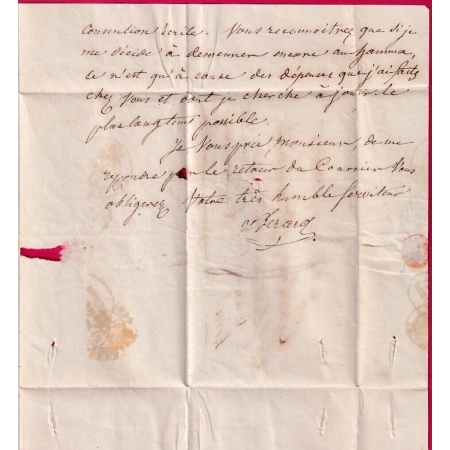 Convention Ecrite. Vous reconnoitrez que si je
me décide à demeurer encore au hamma,
ce n'est qu'à cause des dépenses que j'ai faites
chez Vous et dont je cherche à jouir le
plus longtems possible.
Je Vous prie, Monsieur, de me
repondre par le retour du Courrier Vous
obligerez Votre très humble Serviteur